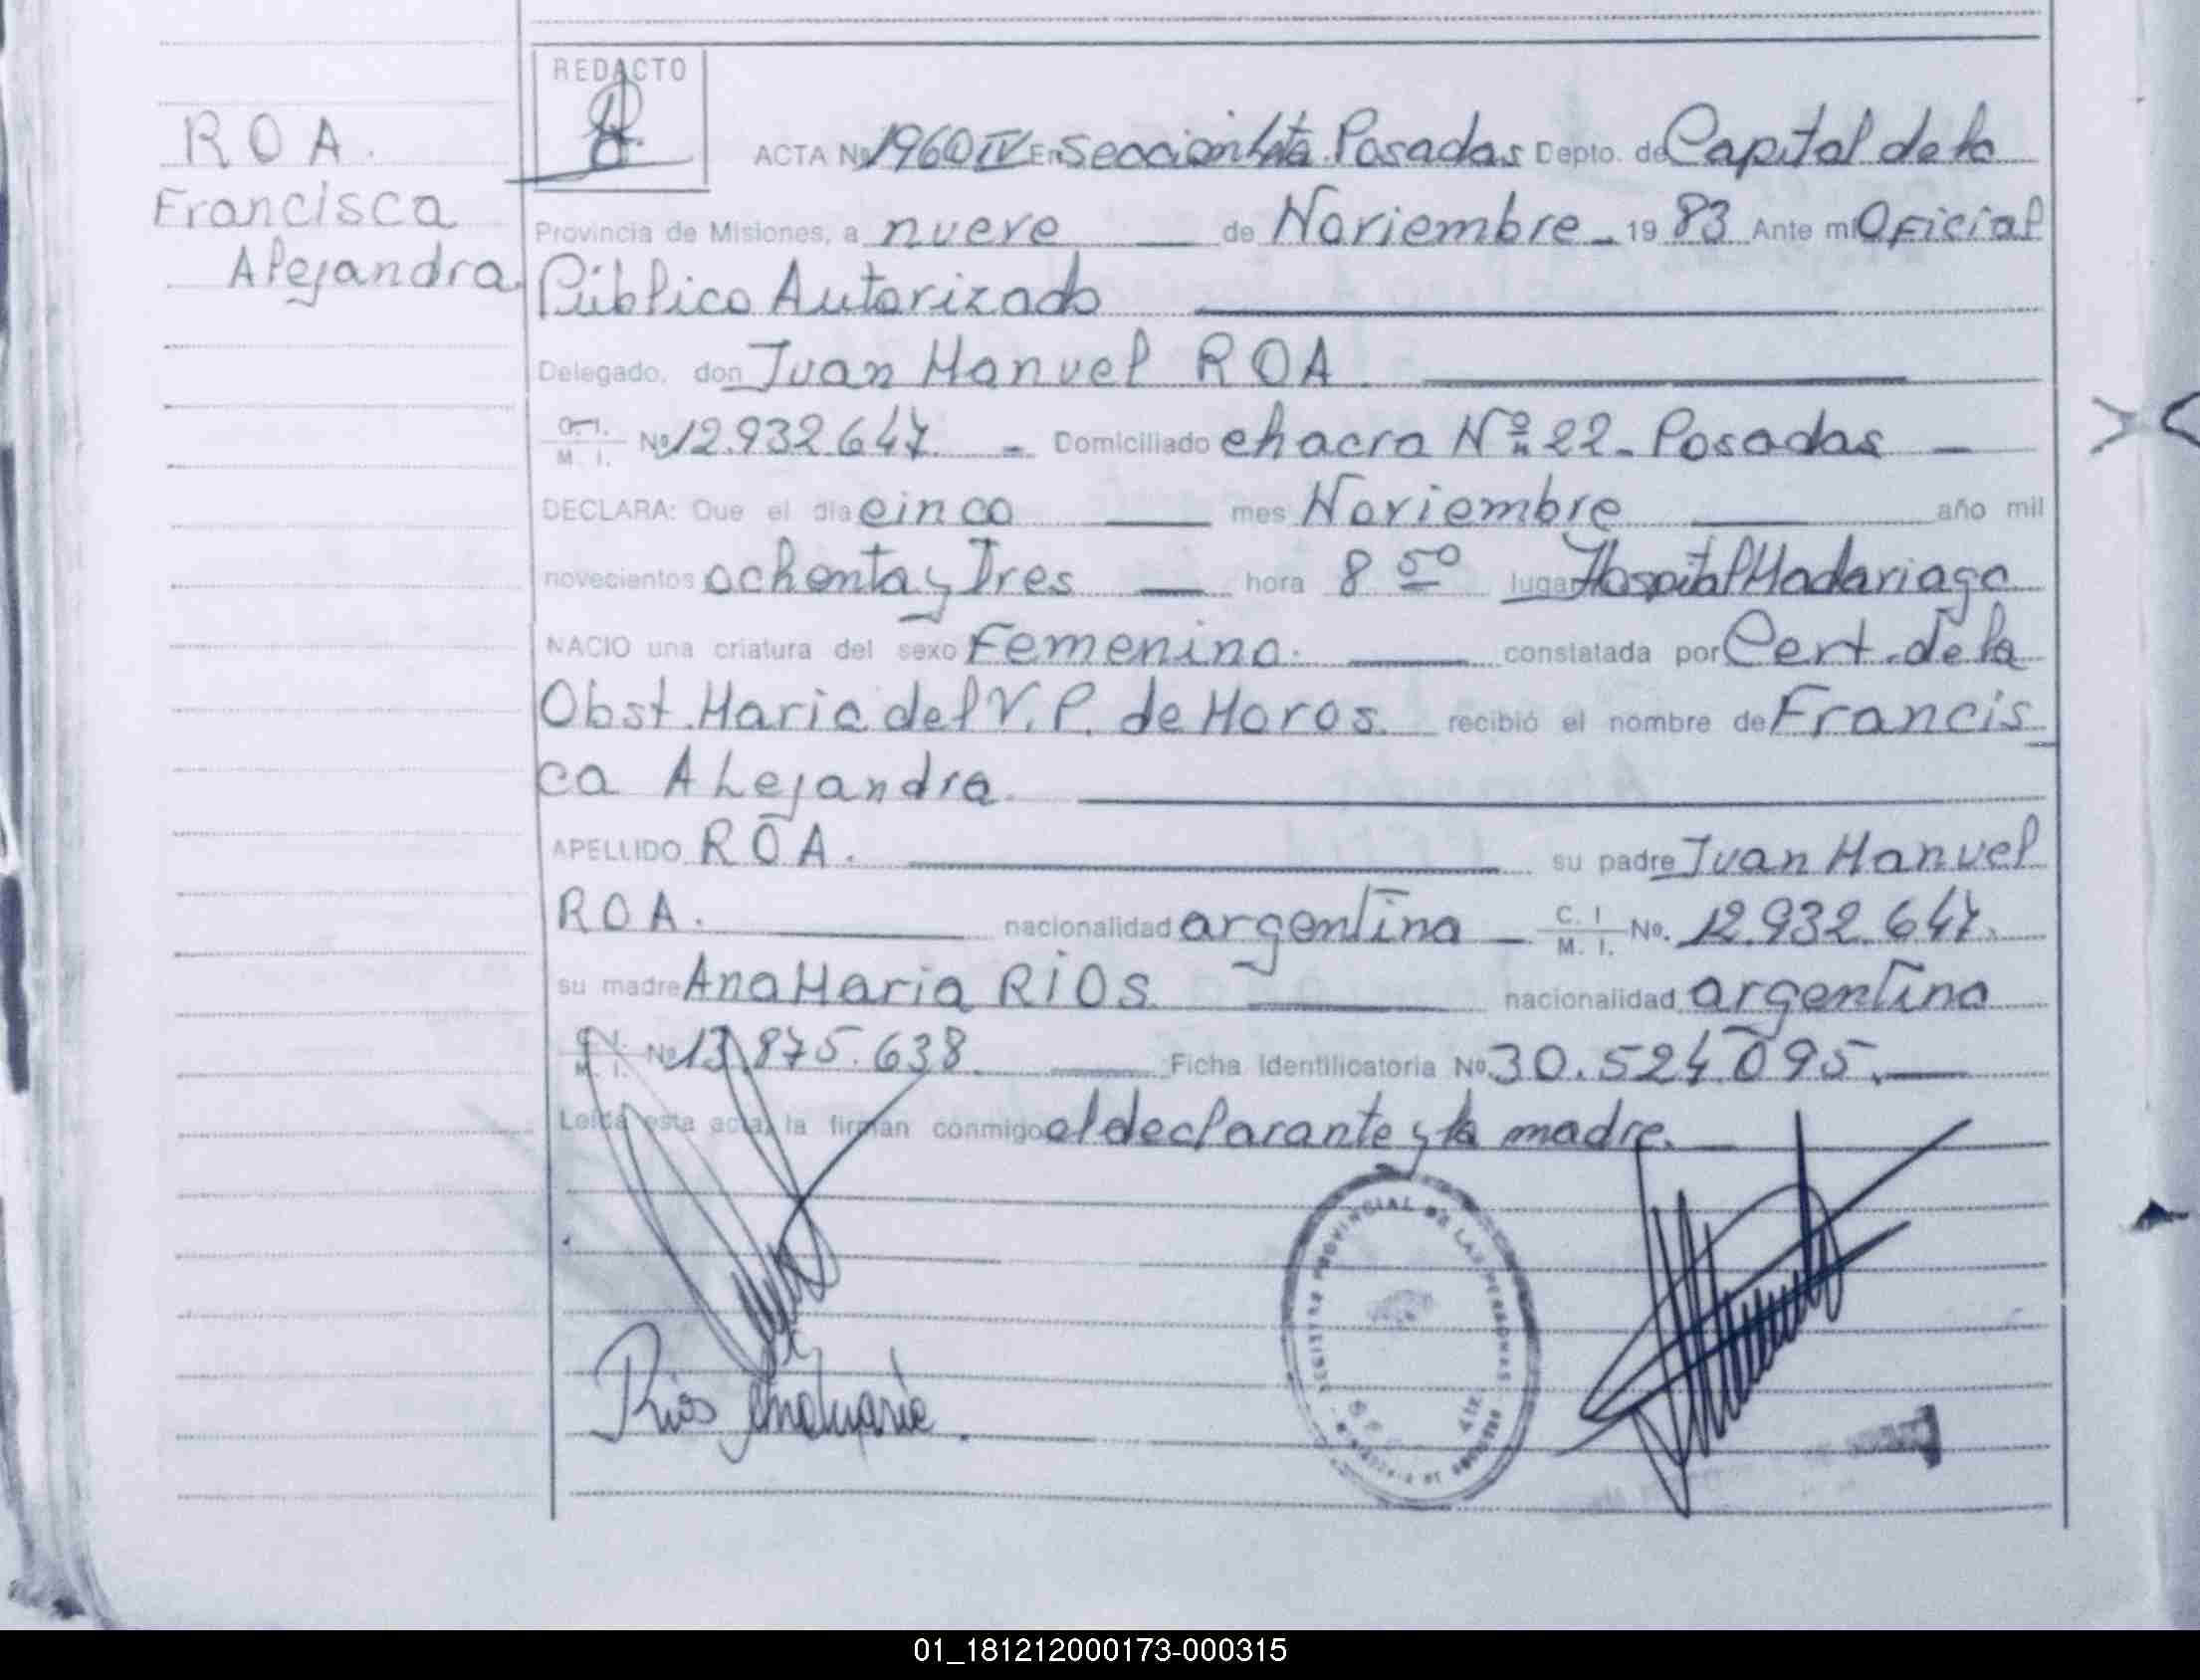 REDACTO
ROA.
Francisca
Alejandra
ACTA Nº 1960 IV En Sección 4ta. Posadas Depto. de Capital de la
Provincia de Misiones, a nueve de Noviembre 19 83 Ante mi Oficial
Público Autorizado
Delegado, don Juan Manuel ROA
C. I. M. I. Nº 12.932.647. Domiciliado chacra Nº 22 - Posadas
DECLARA: Que el día cinco mes Noviembre año mil
novecientos ochenta y Tres hora 8 50 lugar Hospital Madariaga
NACIO una criatura del sexo Femenino. constatada por Cert. de la
Obst. Maria del V. P. de Moros. recibió el nombre de Francis
ca ALejandra.
APELLIDO ROA. su padre Juan Manuel
ROA. nacionalidad argentina C. I M. I. No. 12.932.647.
su madre Ana Maria RIOS nacionalidad argentina
C. I. M. I. Nº 13.875.638. Ficha Identificatoria Nº 30.524.095.
Leída esta acta, la firman conmigo el declarante y la madre.
REGISTRO PROVINCIAL DE LAS PERSONAS
Rios Ana Maria.
01_181212000173-000315